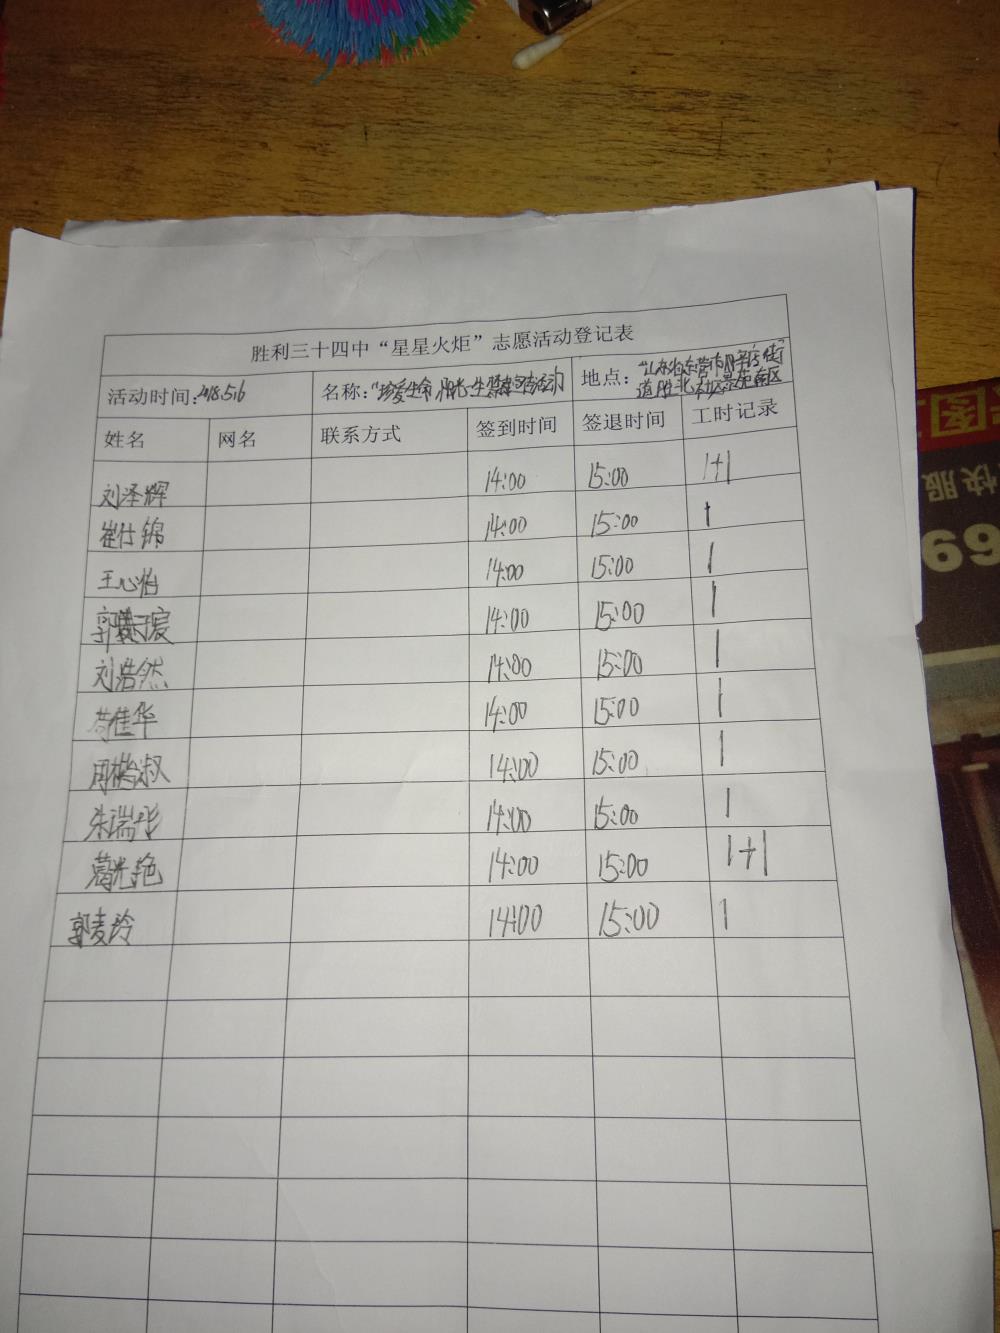 胜利三十四中“星星火炬”志愿活动登记表
活动时间: 名称：“珍爱生命 阳光生活 活动 地点：“山东省东营市胜利街
道胜北社区 南区
姓名 网名 联系方式 签到时间 签退时间 工时记录
刘泽辉 14:00 15:00 1+1
崔仕锦 14:00 15:00 1
王心怡 14:00 15:00 1
郭 宸 14:00 15:00 1
刘浩然 14:00 15:00 1
苟佳华 14:00 15:00 1
周 14:00 15:00 1
朱瑞彤 14:00 15:00 1
葛光艳 14:00 15:00 1+1
郭麦玲 14:00 15:00 1
图
快服
69